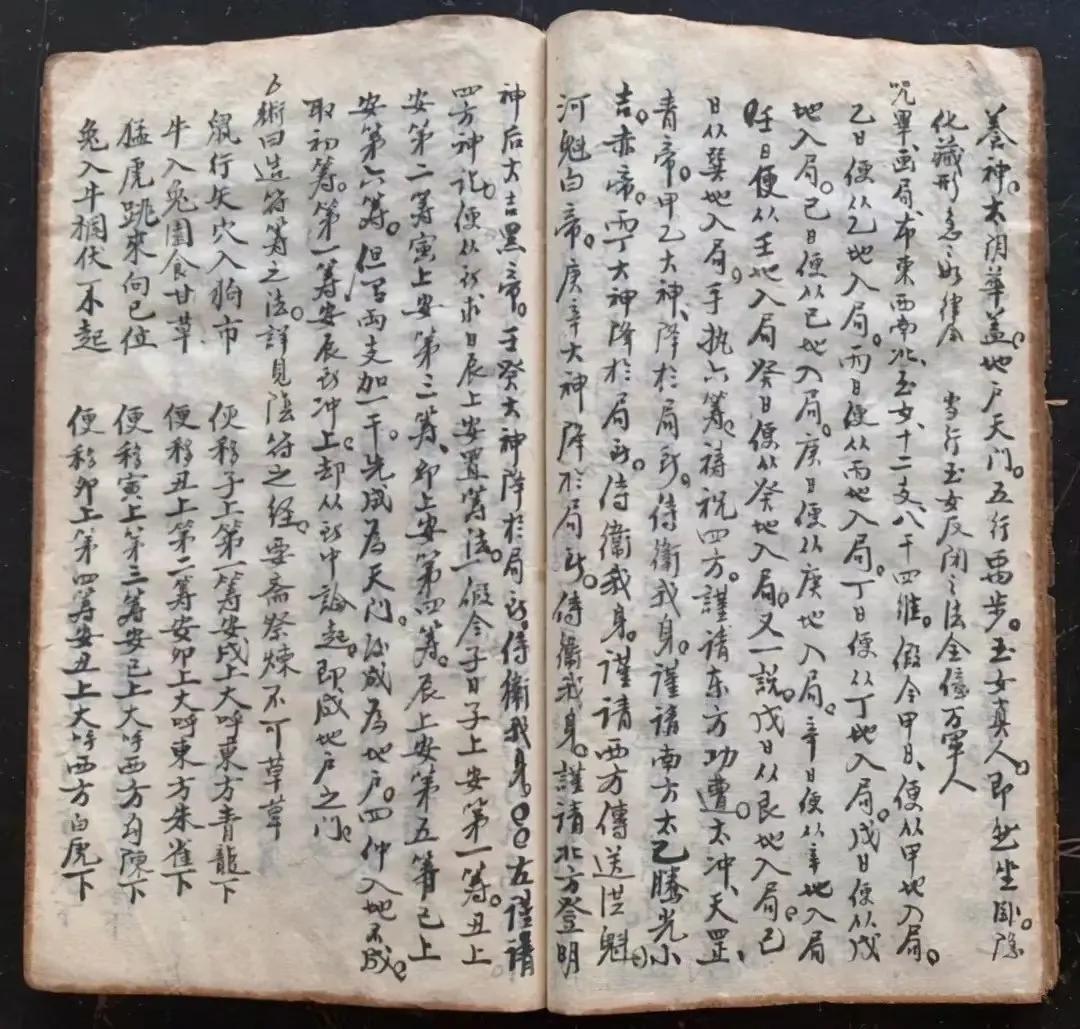 蒼神。太阴華盖。地户天门。五行禹步。玉女真人。即此坐卧。隐
化藏形急々如律令　当行玉女反闭之法全億万軍人
咒畢画局布東西南北、玉女、十二支、八干四维。假令甲日、便从甲地入局。
乙日便从乙地入局。丙日便从丙地入局。丁日便从丁地入局。戊日便从戊
地入局。己日便从己地入局。庚日便从庚地入局。辛日便从辛地入局
壬日便从壬地入局癸日便从癸地入局。又一説。戊日从艮地入局。己
日从巽地入局。手执六筹。祷祝四方。謹请东方功曹。太冲、天罡
青帝。甲乙大神、降於局所。侍衛我身。谨请南方太乙勝光小
吉。赤帝。丙丁大神降於局所。侍衛我身。謹请西方傳送洪魁
河魁白帝。庚辛大神降於局所。侍衛我身。謹請北方登明
神后大吉黑帝。壬癸大神降於局所。侍衛我身。右謹請
四方神讫。便从所求日辰上安置筹法。假令子日子上安第一筹。丑上
安第二筹寅上安第三筹、卯上安第四筹。辰上安第五筹已上
安第六筹。但皆两支加一干。先成為天门。後成為地户。四仲入地不成。
取初筹。第一筹安辰所冲上。却从所中論起。即成地户之门。
术術曰造符筹之法。詳見陰符之经。要斋祭煉不可草草
鼠行失穴入狗市　便移子上第一筹安戌上大呼東方青龍下
牛入兔園食甘草　便移丑上第二筹安卯上大呼東方朱雀下
猛虎跳來向已位　便移寅上第三筹安已上大呼西方勾陳下
兔入牛欄伏不起　便移卯上第四筹安丑上大呼西方白虎下